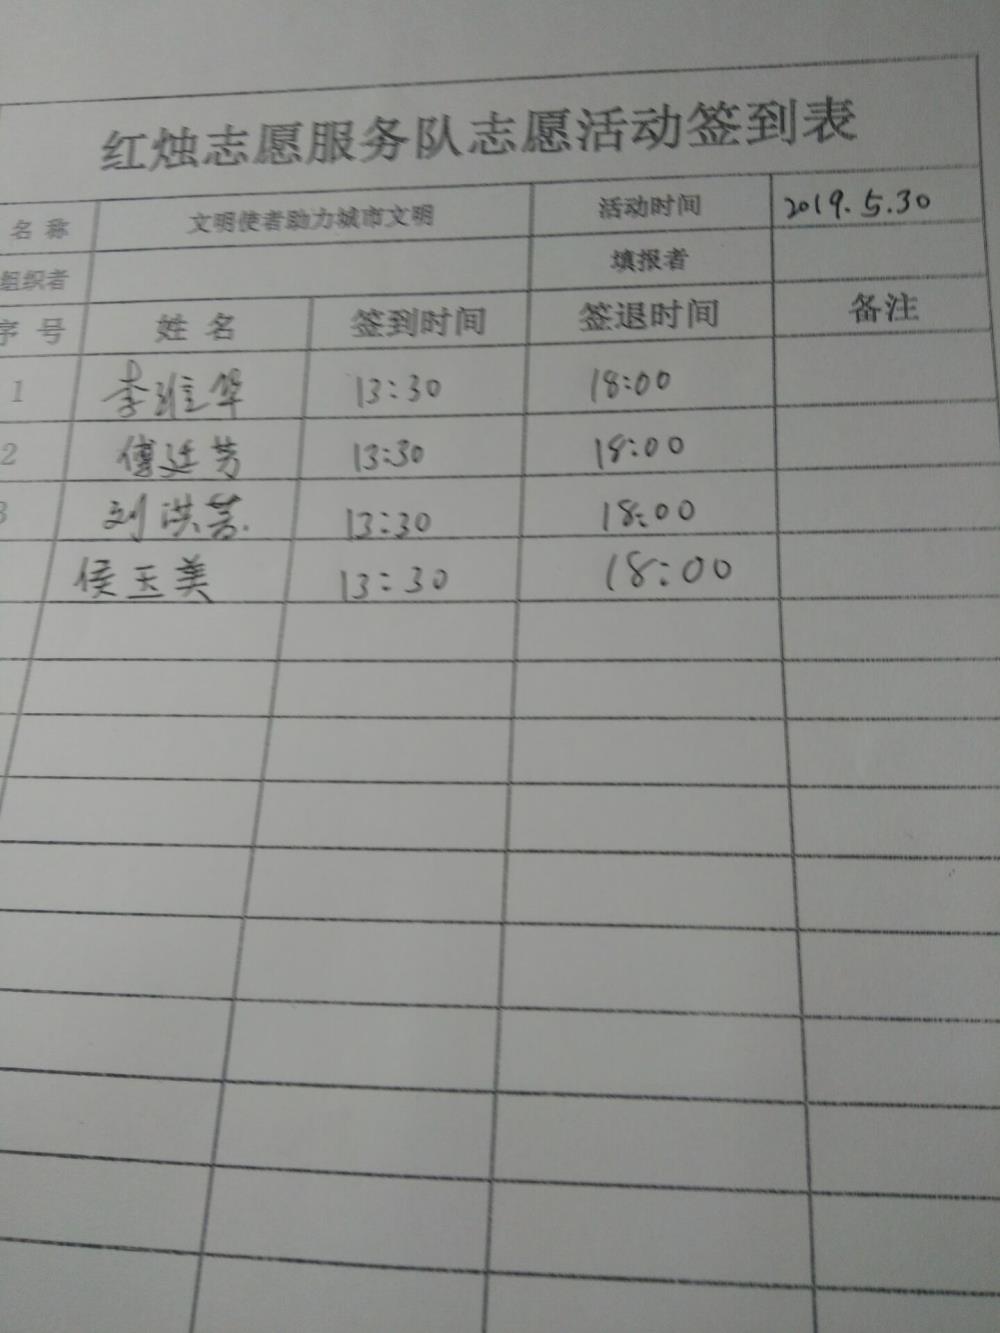 红烛志愿服务队志愿活动签到表
名 称 文明使者助力城市文明 活动时间 2019.5.30
组织者 填报者
序 号 姓 名 签到时间 签退时间 备注
1 李维华 13:30 18:00
2 傅廷芳 13:30 18:00
3 刘洪芳 13:30 18:00
侯玉美 13:30 18:00